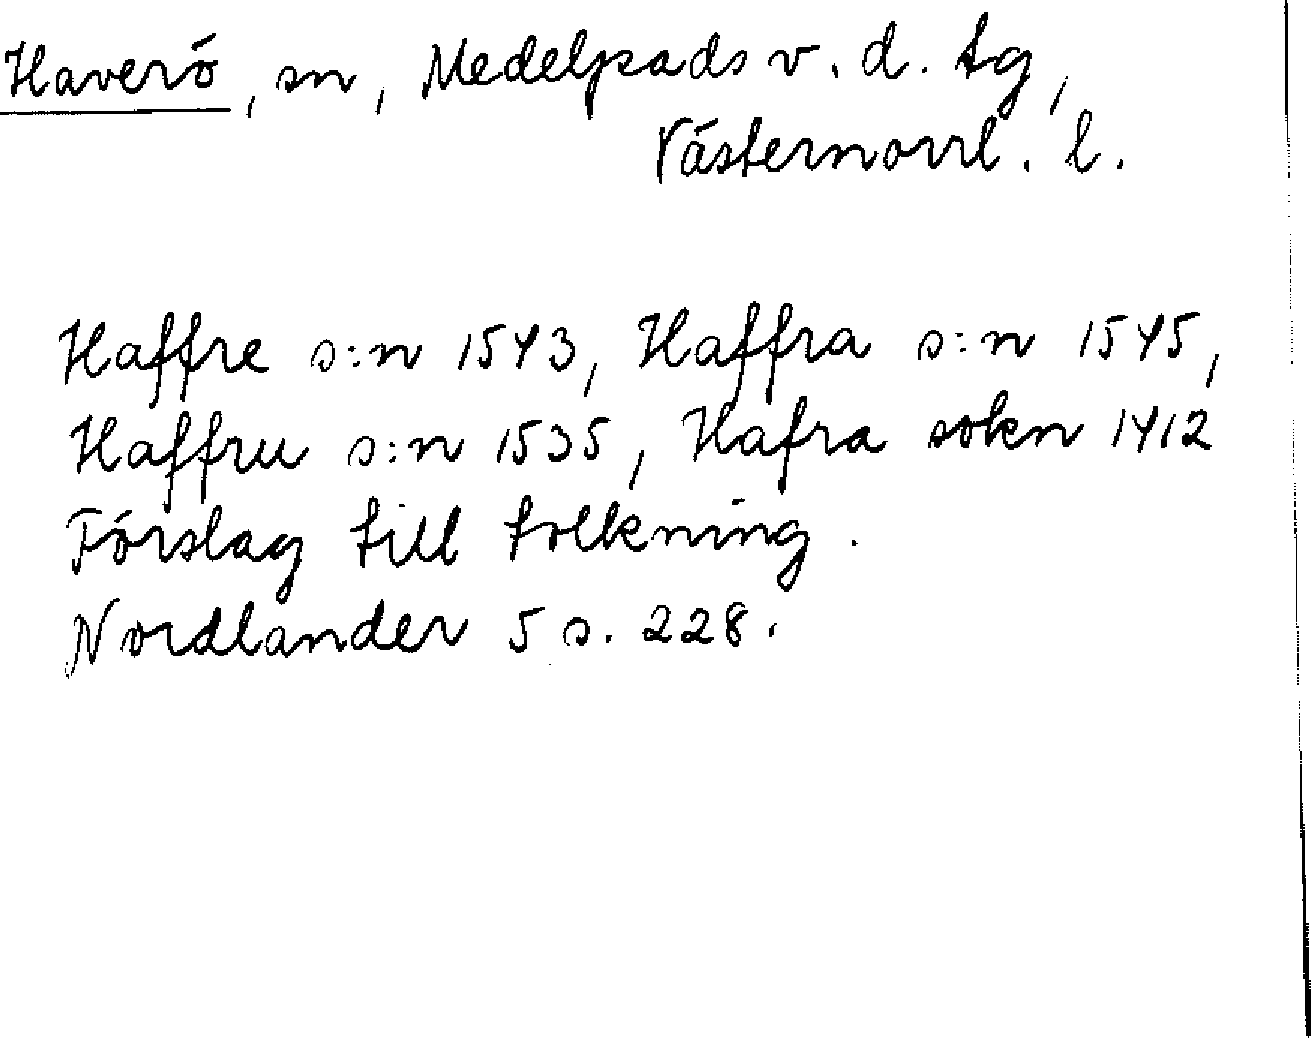 Haverö, sn, Medelpads v. d. tg,
Västernorrl. l.
Haffre s:n 1543, Haffra s:n 1545,
Haffru s:n 1535, Hafra sokn 1412
Förslag till tolkning.
Nordlander 5 s. 228.